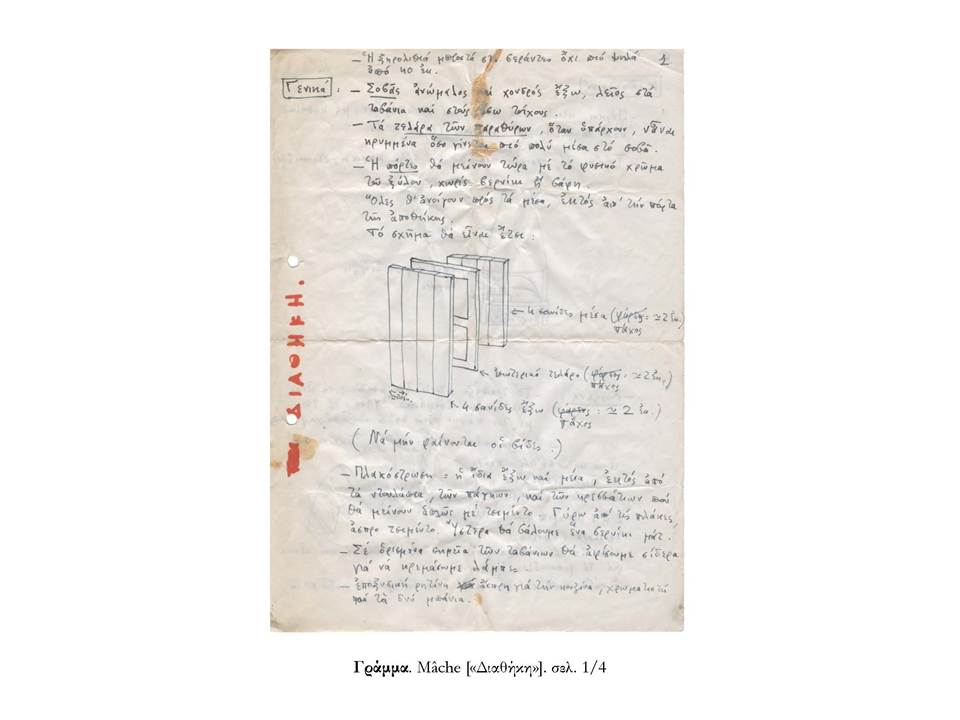 1
— Ἡ ξηρολιθιά μπροστά στο βεράντα ὄχι πιό ψηλά
ἀπό 40 ἑκ.
Γενικά: — Σοβᾶς ἀνώμαλος καί χοντρός ἔξω, λεῖος στά
ταβάνια καί στούς ἔσω τοίχους.
— Τά τελάρα τῶν παραθύρων, ὅταν ὑπάρχουν, νἆναι
κρυμμένα ὅσο γίνεται πιό πολύ μέσα στό σοβᾶ.
— Ἡ πόρτες θά μείνουν τώρα μέ τό φυσικό χρῶμα
τοῦ ξύλου, χωρίς βερνίκι ἤ βάψη.
Ὅλες θ' ἀνοίγουν πρός τά μέσα, ἐκτός ἀπ' τήν πόρτα
τῆς ἀποθήκης.
Τό σχῆμα θά εἶναι ἔτσι:
← 4 σανίδες μέσα (φάρδος: ≃ 2 ἑκ.)
πάχος
← ἐσωτερικό τελάρο (φάρδος: ≃ 2 ἑκ.)
πάχος
4 σανίδες ἔξω (φάρδος: ≃ 2 ἑκ.)
πάχος
(Νά μήν φαίνονται οἱ βίδες.)
— Πλακόστρωση = ἡ ἴδια ἔξω καί μέσα, ἐκτός ἀπό
τά ντουλάπια, τῶν πάγκων, καί τῶν κρεββάτων πού
θά μείνουν ἁπλῶς μέ τσιμέντο. Γύρω ἀπό τίς πλάκες,
ἄσπρο τσιμέντο. Ὕστερα θά βάλουμε ἕνα βερνίκι μάτ.
— Σέ ὁρισμένα σημεῖα τῶν ταβάνιων θά ἀφίσουμε σίδερα
γιά νά κρεμάσωμε λάμπες.
— ἐποξυσική ρητίνη ἄσπρη γιά τήν κουζίνα, χρωματιστή
γιά τά δυό μπάνια.
ΔΙΑΘΗΚΗ.
Γράμμα. Mâche [«Διαθήκη»]. σελ. 1/4